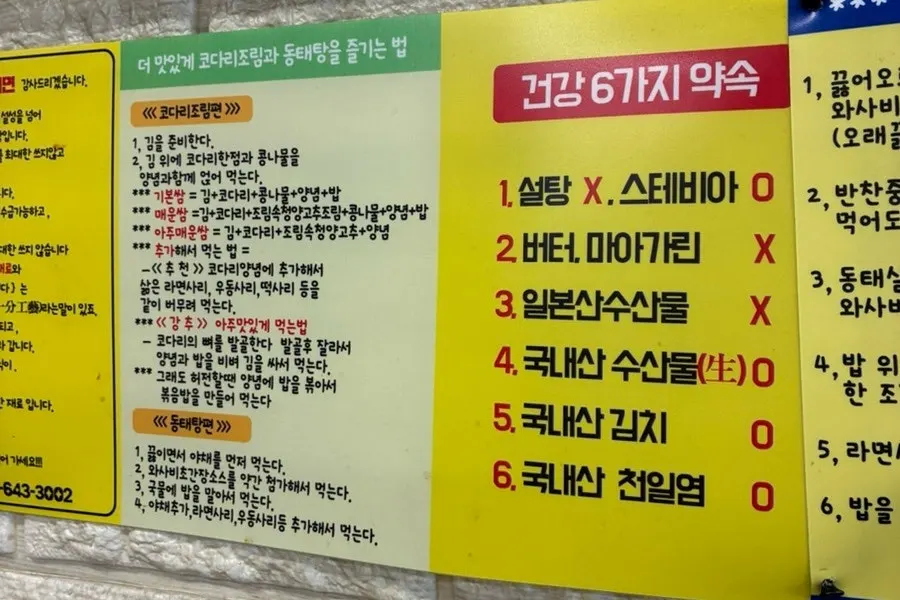 감사드리겠습니다.
설성을 넣어
최대한 쓰지않고
수급가능하고,
대한 쓰지 않습니다
다} 는
一分工藝}라는말이 있죠.
되고,
갑니다.
재료 입니다.
가세요!!!
-643-3002
더 맛있게 코다리조림과 동태탕을 즐기는 법
<<< 코다리조림편 >>>
1, 김을 준비한다.
2, 김 위에 코다리한점과 콩나물을
양념과함께 얹어 먹는다.
*** 기본쌈 = 김+코다리+콩나물+양념+밥
*** 매운쌈 =김+코다리+조림속청양고추조림+콩나물+양념+밥
*** 아주매운쌈 = 김+코다리+조림속청양고추+양념
*** 추가해서 먹는 법 =
–<< 추 천 >> 코다리양념에 추가해서
삶은 라면사리, 우동사리,떡사리 등을
같이 버무려 먹는다.
*** << 강 추 >> 아주맛있게 먹는법
– 코다리의 뼈를 발골한다 발골후 잘라서
양념과 밥을 비벼 김을 싸서 먹는다.
*** 그래도 허전할땐 양념에 밥을 볶아서
볶음밥을 만들어 먹는다
<<< 동태탕편 >>>
1, 끓이면서 야채를 먼저 먹는다.
2, 와사비초간장소스를 약간 첨가해서 먹는다.
3, 국물에 밥을 말아서 먹는다.
4, 야채추가,라면사리,우동사리등 추가해서 먹는다.
건강 6가지 약속
1. 설탕 X . 스테비아 O
2. 버터. 마아가린 X
3. 일본산수산물 X
4. 국내산 수산물(生) O
5. 국내산 김치 O
6. 국내산 천일염 O
***
1, 끓어오
와사비
(오래끓
2, 반찬중
먹어도
3, 동태살
와사비
4, 밥 위
한 조
5, 라면사
6, 밥을